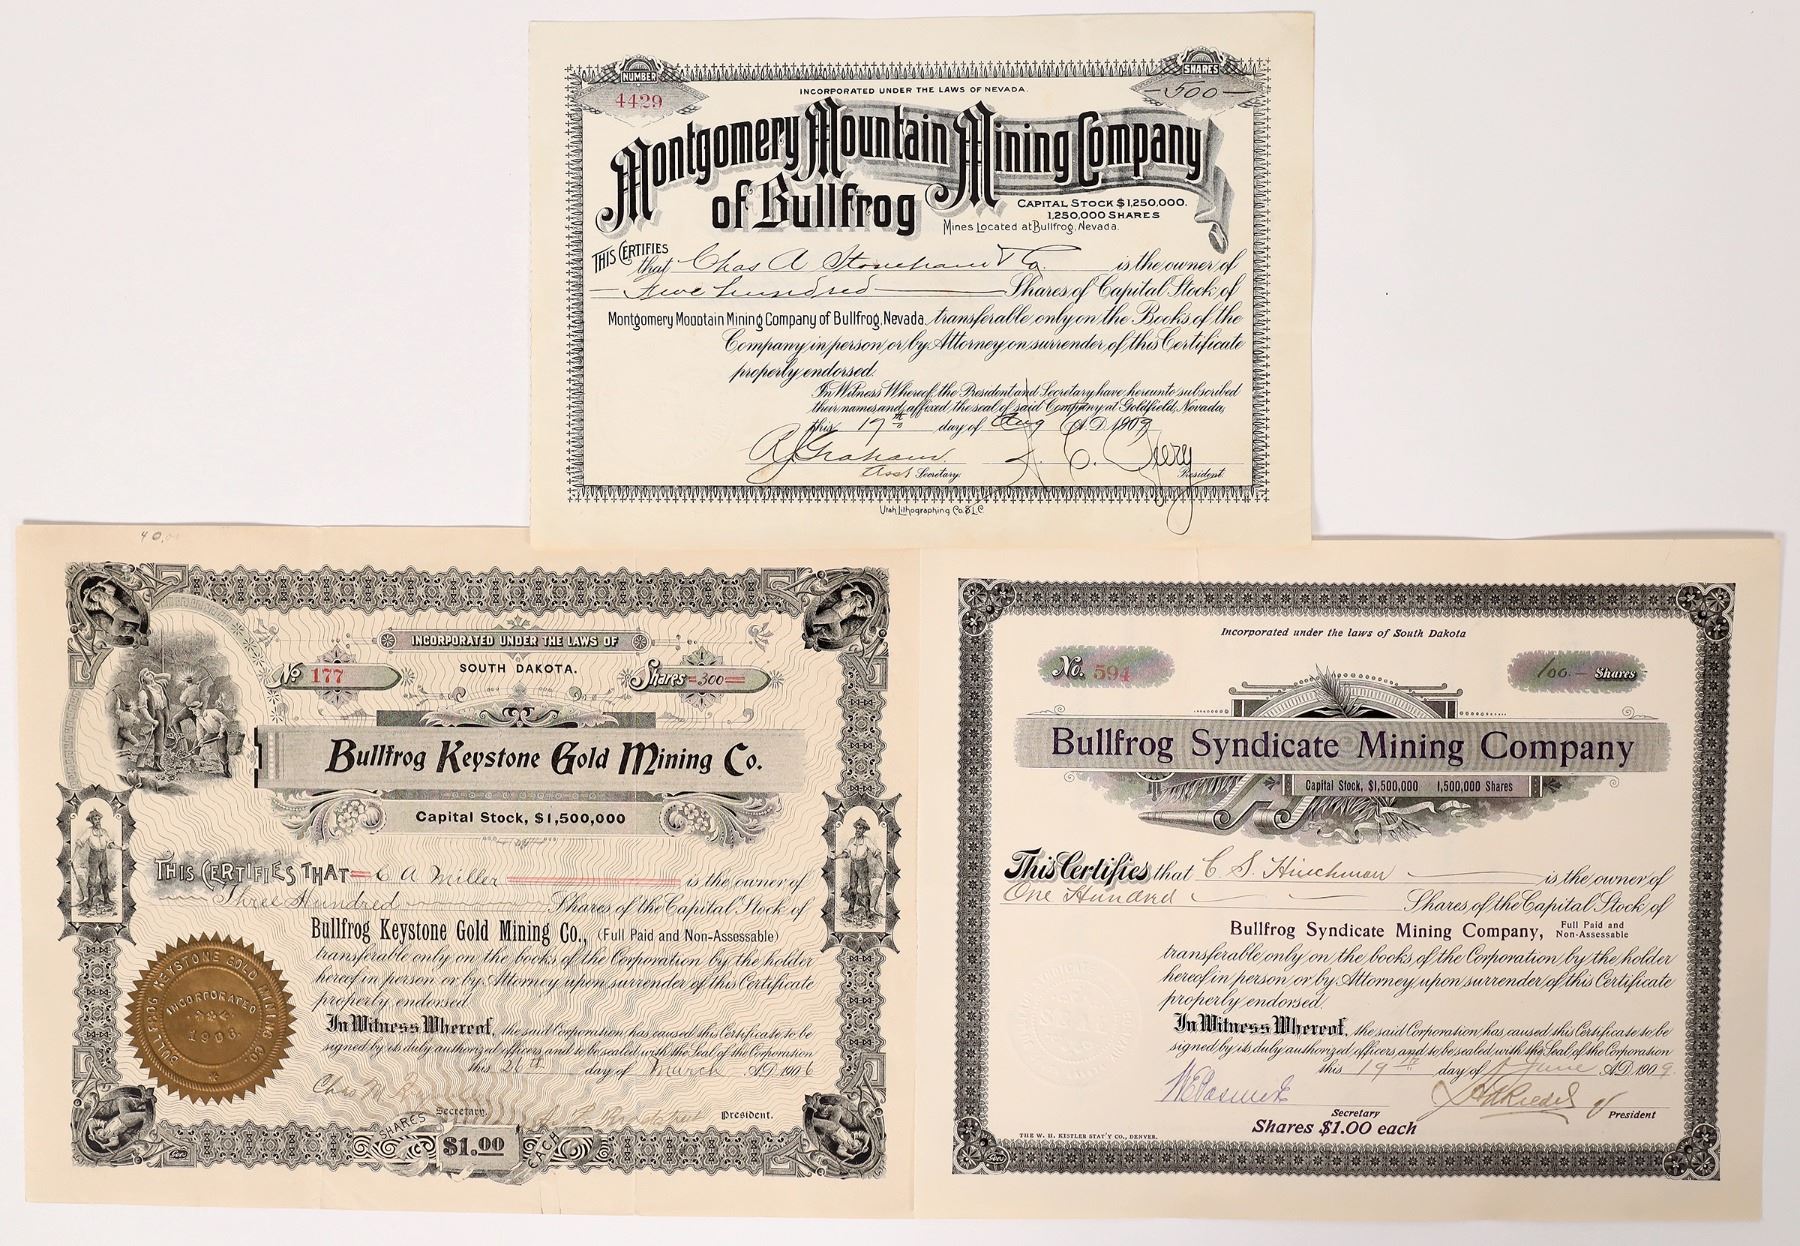 NUMBER
4429
SHARES
500
INCORPORATED UNDER THE LAWS OF NEVADA.
Montgomery Mountain Mining Company
of Bullfrog
CAPITAL STOCK $1,250,000.
1,250,000 SHARES
Mines Located at Bullfrog, Nevada.
THIS CERTIFIES
that Chas A Stoneham & Co. is the owner of
Five hundred Shares of Capital Stock of
Montgomery Mouotain Mining Company of Bullfrog, Nevada, transferable only on the Books of the
Company in person or by Attorney on surrender of this Certificate
properly endorsed.
In Witness Whereof, the President and Secretary have hereunto subscribed
their names and affixed the seal of said Company at Goldfield, Nevada,
this 17th day of Aug A.D. 1909
R J Graham
Asst Secretary.
President.
Utah Lithographing Co. S.L.C.
40.00
INCORPORATED UNDER THE LAWS OF
SOUTH DAKOTA.
No 177
Shares 300
Bullfrog Keystone Gold Mining Co.
Capital Stock, $1,500,000
THIS CERTIFIES THAT C A Miller is the owner of
Three Hundred Shares of the Capital Stock of
Bullfrog Keystone Gold Mining Co., (Full Paid and Non-Assessable)
transferable only on the books of the Corporation by the holder
hereof in person or by Attorney upon surrender of this Certificate
properly endorsed.
In Witness Whereof, the said Corporation has caused this Certificate to be
signed by its duly authorized officers and to be sealed with the Seal of the Corporation
this 26th day of March A.D. 1906
Chas M
Secretary.
President.
BULLFROG KEYSTONE GOLD MINING CO.
INCORPORATED
1906
SHARES $1.00 EACH
Incorporated under the laws of South Dakota
No. 594
100.- Shares
Bullfrog Syndicate Mining Company
Capital Stock, $1,500,000 1,500,000 Shares
This Certifies that C. S. Hinchman is the owner of
One Hundred Shares of the Capital Stock of
Bullfrog Syndicate Mining Company, Full Paid and
Non-Assessable
transferable only on the books of the Corporation by the holder
hereof in person or by Attorney upon surrender of this Certificate
properly endorsed.
In Witness Whereof, the said Corporation has caused this Certificate to be
signed by its duly authorized officers and to be sealed with the Seal of the Corporation
this 19th day of June A.D. 1909.
Secretary
President
Shares $1.00 each
THE W. H. KISTLER STAT'Y CO., DENVER.